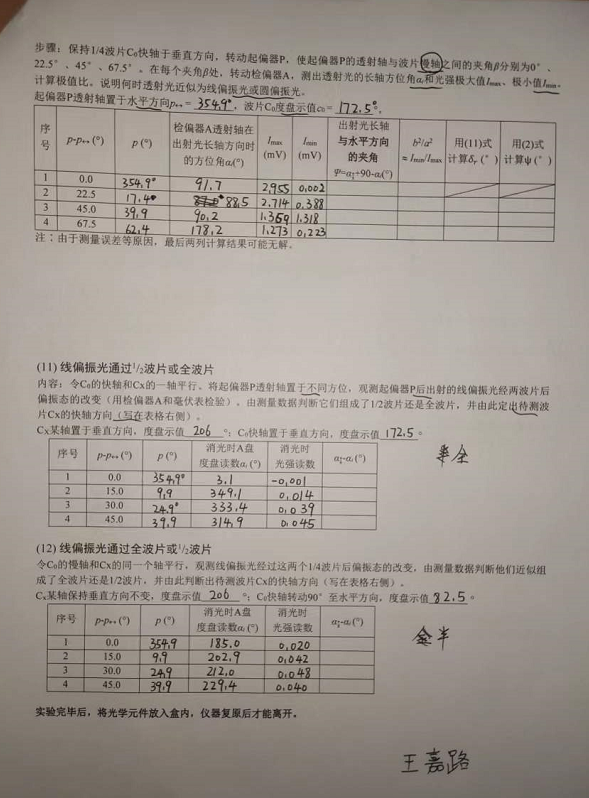 步骤：保持1/4波片C₀快轴于垂直方向，转动起偏器P，使起偏器P的透射轴与波片慢轴之间的夹角β分别为0°、
22.5°、45°、67.5°。在每个夹角β处，转动检偏器A，测出透射光的长轴方位角αᵢ和光强极大值Imax、极小值Imin，
计算极值比。说明何时透射光近似为线偏振光或圆偏振光。
起偏器P透射轴置于水平方向p↔= 354.9°，波片C₀度盘示值c₀= 172.5°。
序号 p-p↔(°) p(°) 检偏器A透射轴在出射光长轴方向时的方位角αᵢ(°) Imax (mV) Imin (mV) 出射光长轴与水平方向的夹角 Ψ=α↕+90-αᵢ(°) b²/a² ≈Imin/Imax 用(11)式计算δτ(°) 用(2)式计算ψ(°)
1 0.0 354.9° 91.7 2.955 0.002
2 22.5 17.4° 88.5 2.714 0.388
3 45.0 39.9 90.2 1.359 1.318
4 67.5 62.4 178.2 1.273 0.223
注：由于测量误差等原因，最后两列计算结果可能无解。
(11) 线偏振光通过1/2波片或全波片
内容：令C₀的快轴和Cx的一轴平行。将起偏器P透射轴置于不同方位，观测起偏器P后出射的线偏振光经两波片后
偏振态的改变（用检偏器A和毫伏表检验）。由测量数据判断它们组成了1/2波片还是全波片，并由此定出待测波
片Cx的快轴方向（写在表格右侧）。
Cx某轴置于垂直方向，度盘示值 206 °；C₀快轴置于垂直方向，度盘示值 172.5 °
序号 p-p↔(°) p(°) 消光时A盘度盘读数αᵢ(°) 消光时光强读数 α↕-αᵢ(°)
1 0.0 354.9° 3.1 -0.001
2 15.0 9.9 349.1 0.014
3 30.0 24.9° 333.4 0.039
4 45.0 39.9 314.9 0.045
全
(12) 线偏振光通过全波片或1/2波片
令C₀的慢轴和Cx的同一个轴平行，观测线偏振光经过这两个1/4波片后偏振态的改变，由测量数据判断他们近似组
成了全波片还是1/2波片，并由此判断出待测波片Cx的快轴方向（写在表格右侧）。
Cₓ某轴保持垂直方向不变，度盘示值 206 °；C₀快轴转动90°至水平方向，度盘示值 82.5 °
序号 p-p↔(°) p(°) 消光时A盘度盘读数αᵢ(°) 消光时光强读数 α↕-αᵢ(°)
1 0.0 354.9 185.0 0.020
2 15.0 9.9 202.9 0.042
3 30.0 24.9 212.0 0.048
4 45.0 39.9 229.4 0.040
半
实验完毕后，将光学元件放入盒内，仪器复原后才能离开。
王嘉路